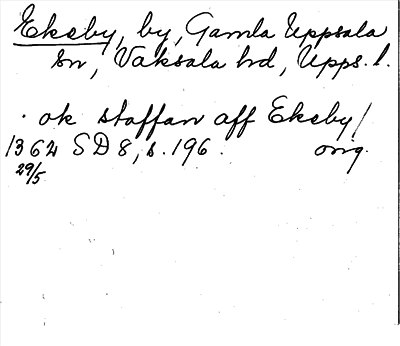 Ekeby, by, Gamla Uppsala
sn, Vaksala hd, Upps. l.
ok staffan aff Ekeby/
1364 SD 8, s. 196. orig.
29/5